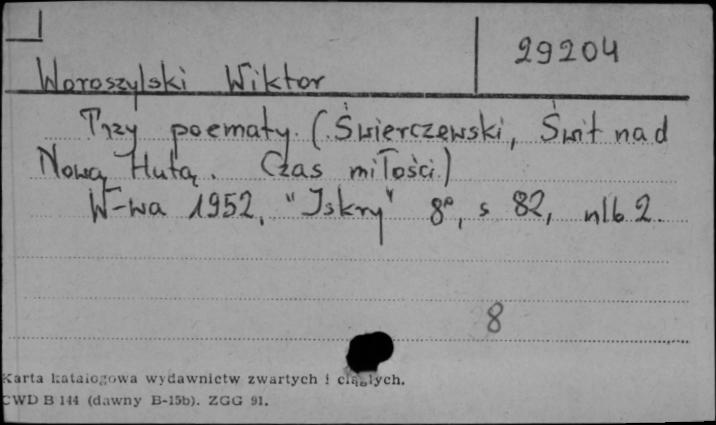 29204
Woroszylski Wiktor
Trzy poematy. (Świerczewski, Świt nad
Nową Hutą. Czas miłości.)
W-wa 1952, "Iskry" 8°, s 82, nlb 2.
8
Karta katalogowa wydawnictw zwartych i ciągłych.
CWD B 144 (dawny B-15b). ZGG 91.